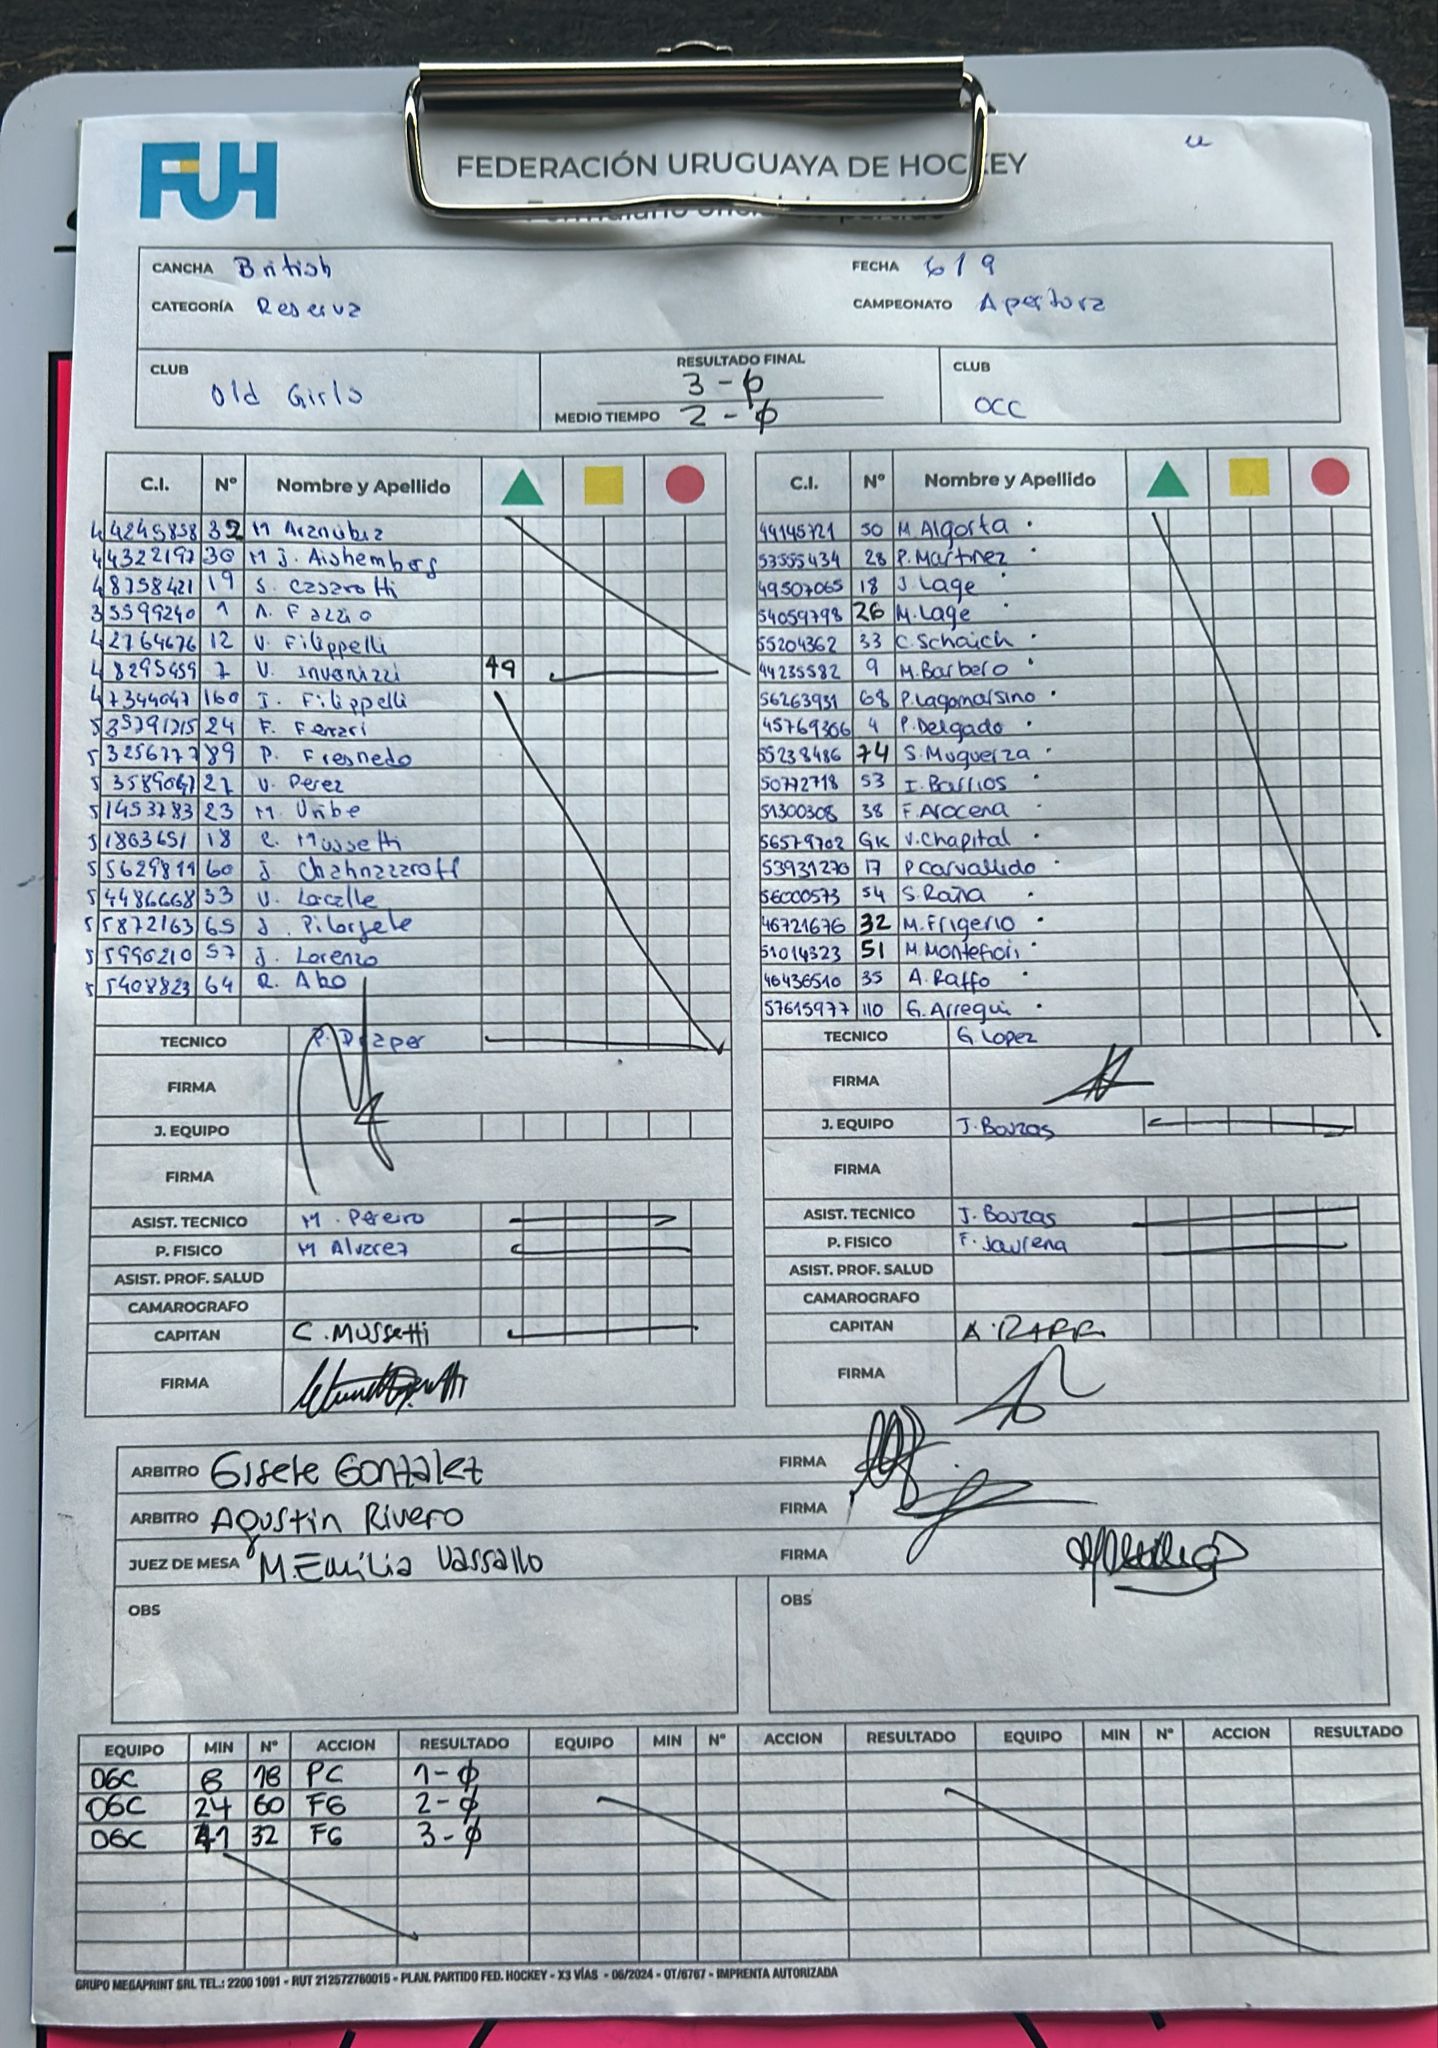 FUH
FEDERACIÓN URUGUAYA DE HOCKEY
CANCHA British FECHA 6/9
CATEGORÍA Reserva CAMPEONATO Apertura
CLUB Old Girls RESULTADO FINAL 3-0 CLUB OCC
MEDIO TIEMPO 2-0
C.I. Nº Nombre y Apellido
44245858 32 M Aranubiz
44322197 30 M J. Aishemberg
48758421 19 S. Casarotti
35599240 1 A. Fazzio
42764676 12 V. Filippelli
48295459 7 V. Invernizzi 49
47344047 160 I. Filippelli
24 F. Ferrari
89 P. Fresnedo
V. Perez
51453783 23 M. Uribe
51863651 18 C. Mussetti
55629819 60 J. Chahnazaroff
54486668 53 V. Lacalle
55872163 65 J.
55996210 57 J. Lorenzo
55408823 64 R. Abo
TECNICO P. Draper
FIRMA
J. EQUIPO
FIRMA
ASIST. TECNICO M. Pereiro
P. FISICO M Alvarez
ASIST. PROF. SALUD
CAMAROGRAFO
CAPITAN C. Mussetti
FIRMA
C.I. Nº Nombre y Apellido
44145721 50 M. Algorta
53555434 28 P. Martinez
49507065 18 J. Lage
54059798 26 M. Lage
55204362 33 C. Schaich
44235582 9 M. Barbero
56263931 68 P. Lagomarsino
45769306 4 P. Delgado
55238486 74 S. Muguerza
50772718 53 I. Barrios
51300308 38 F. Arocena
56579702 GK V. Chapital
53931270 17 P Carvallido
56000573 54 S. Raña
46721676 32 M. Frigerio
51014323 51 M. Montefiori
46436510 35 A. Raffo
57615977 110 G. Arregui
TECNICO G Lopez
FIRMA
J. EQUIPO J. Bouzas
FIRMA
ASIST. TECNICO J. Bouzas
P. FISICO F. Jaurena
ASIST. PROF. SALUD
CAMAROGRAFO
CAPITAN
FIRMA
ARBITRO Gisele Gonzalez FIRMA
ARBITRO Agustin Rivero FIRMA
JUEZ DE MESA M. Emilia Vassallo FIRMA
OBS OBS
EQUIPO MIN Nº ACCION RESULTADO EQUIPO MIN Nº ACCION RESULTADO EQUIPO MIN Nº ACCION RESULTADO
OGC 8 18 PC 1-0
OGC 24 60 FG 2-0
OGC 41 32 FG 3-0
GRUPO MEGAPRINT SRL TEL.: 2200 1091 - RUT 212572760015 - PLAN. PARTIDO FED. HOCKEY - X3 VÍAS - 06/2024 - OT/6767 - IMPRENTA AUTORIZADA